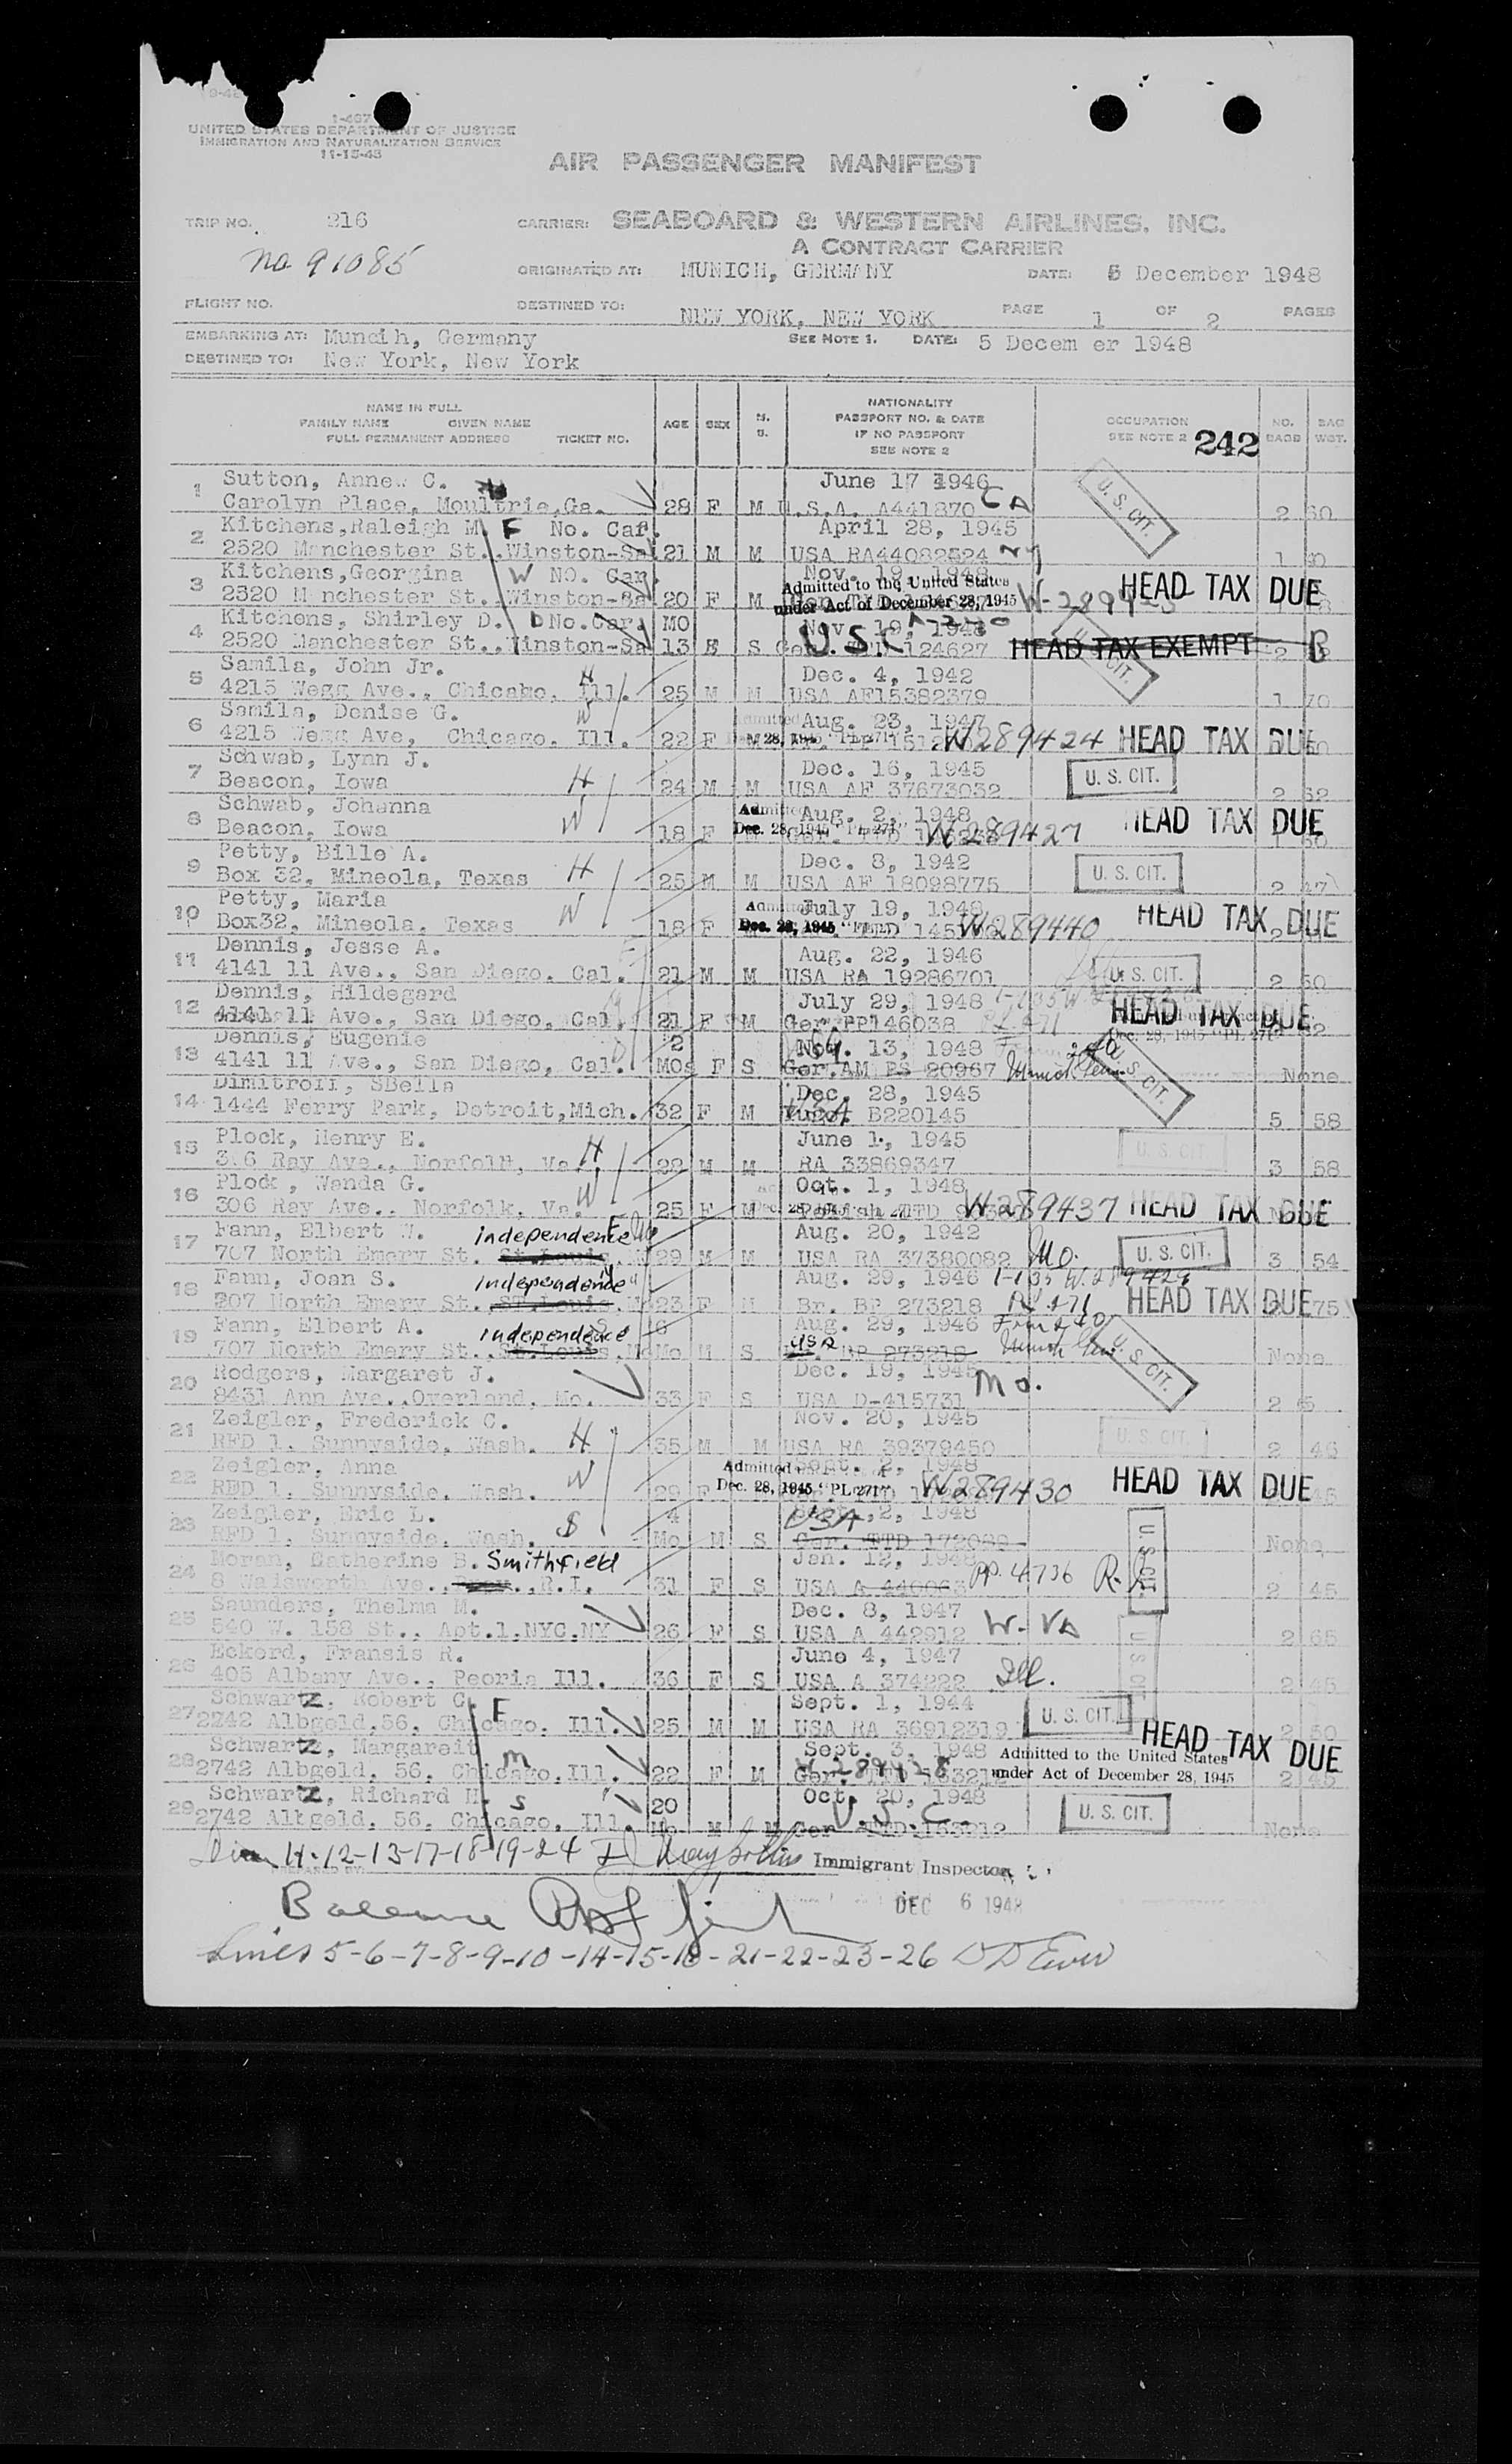 1-467
UNITED STATES DEPARTMENT OF JUSTICE
IMMIGRATION AND NATURALIZATION SERVICE
11-15-43
AIR PASSENGER MANIFEST
TRIP NO. 216 CARRIER: SEABOARD & WESTERN AIRLINES, INC.
A CONTRACT CARRIER
no 91085 ORIGINATED AT: MUNICH, GERMANY DATE: 5 December 1948
FLIGHT NO. DESTINED TO: NEW YORK, NEW YORK PAGE 1 OF 2 PAGES
EMBARKING AT: Muncih, Germany SEE NOTE 1. DATE: 5 Decem er 1948
DESTINED TO: New York, New York
NAME IN FULL
FAMILY NAME GIVEN NAME
FULL PERMANENT ADDRESS TICKET NO.
AGE SEX M. S.
NATIONALITY
PASSPORT NO. & DATE
IF NO PASSPORT
SEE NOTE 2
OCCUPATION
SEE NOTE 2 242
NO. BAGS BAG WGT.
1 Sutton, Annew C. June 17 1946
Carolyn Place, Moultrie,Ga. 28 F M U.S.A. A441870 GA U. S. CIT. 2 60
2 Kitchens,Raleigh M. F No. Car. April 28, 1945
2520 Manchester St.,Winston-Sa 21 M M USA RA44082524 NY 1
3 Kitchens,Georgina W NO. Car. Nov. 19, 1948
2520 M nchester St.,Winston-Sa 20 F M Admitted to the United States under Act of December 28, 1945 HEAD TAX DUE
4 Kitchens, Shirley D. D No.Car. MO Nov. 19, 1948
2520 Manchester St.,Winston-Sa 13 F S U.S.C 124627 HEAD TAX EXEMPT U. S. CIT. 2
5 Samila, John Jr. H Dec. 4, 1942
4215 Wegg Ave., Chicago, Ill. 25 M M USA AF15382379 1 70
6 Samila, Denise G. W Aug. 23, 1947
4215 Wegg Ave, Chicago, Ill. 22 F M W289424 HEAD TAX DUE
7 Schwab, Lynn J. Dec. 16, 1945
Beacon, Iowa H 24 M M USA AF 37673032 U. S. CIT. 2 62
8 Schwab, Johanna Aug. 2, 1948
Beacon, Iowa W 18 F Dec. 28, 1945 "PL 271" W289427 HEAD TAX DUE
9 Petty, Bille A. Dec. 8, 1942
Box 32, Mineola, Texas H 25 M M USA AF 18098775 U. S. CIT. 2 47
10 Petty, Maria July 19, 1948
Box32, Mineola, Texas W 18 F Dec. 28, 1945 W289440 HEAD TAX DUE
11 Dennis, Jesse A. Aug. 22, 1946
4141 11 Ave., San Diego, Cal. 21 M M USA RA 19286701 U. S. CIT. 2 50
12 Dennis, Hildegard July 29, 1948
4141 11 Ave., San Diego, Cal. 21 F M Ger.PP146038 HEAD TAX DUE
Dec. 28, 1945 "PL 271"
13 Dennis, Eugenie 2 Nov. 13, 1948
4141 11 Ave., San Diego, Cal. MOs F S Ger.AM PS 20967 Munich Germ U. S. CIT. None
14 Dimitroff, SBella Dec. 28, 1945
1444 Ferry Park, Detroit,Mich. 32 F M USA B220145 5 58
15 Plock, Henry E. H June 1, 1945
306 Ray Ave., Norfolk, Va. 22 M M RA 33869347 U. S. CIT. 3 58
16 Plock , Wanda G. W Oct. 1, 1948
306 Ray Ave., Norfolk, Va. 25 F M W289437 HEAD TAX DUE
17 Fann, Elbert W. Independence Aug. 20, 1942
707 North Emery St. St.Louis, 29 M M USA RA 37380082 Mo. U. S. CIT. 3 54
18 Fann, Joan S. Independence Aug. 29, 1946
207 North Emery St. ST.Louis, 23 F M Br. BP 273218 HEAD TAX DUE 75
19 Fann, Elbert A. Independence Aug. 29, 1946
707 North Emery St. St.Louis, Mo M S USA BP 273218 U. S. CIT. None
20 Rodgers, Margaret J. Dec. 19, 1945
8431 Ann Ave.,Overland, Mo. 33 F S USA D-415731 Mo. 2
21 Zeigler, Frederick C. Nov. 20, 1945
RFD 1, Sunnyside, Wash. H 35 M M USA RA 39379450 U. S. CIT. 2 46
22 Zeigler, Anna Sept. 2, 1948
RED 1, Sunnyside, Wash. W 29 F Admitted Dec. 28, 1945 "PL 271" W289430 HEAD TAX DUE
23 Zeigler, Eric L. 4 2, 1948
RFD 1, Sunnyside, Wash. S Mo M S USA Ger. TTD 172088 None
24 Moran, Catherine B. Smithfield Jan. 12, 1948
8 Walsworth Ave., R.I. 31 F S USA A 440063 pp. 4736 R. I. U. S. CIT. 2 45
25 Saunders, Thelma M. Dec. 8, 1947
540 W. 158 St., Apt.1,NYC,NY 26 F S USA A 442912 W-VA 2 65
26 Eckerd, Fransis R. June 4, 1947
405 Albany Ave., Peoria Ill. 36 F S USA A 374222 Ill. 2 45
27 Schwartz, Robert C. F Sept. 1, 1944
2242 Albgeld,56, Chicago, Ill. 25 M M USA RA 36912319 U. S. CIT. 2 50
28 Schwartz, Margareit m Sept. 3, 1948 Admitted to the United States HEAD TAX DUE
2742 Albgeld, 56, Chicago,Ill. 22 F M Ger. TTD 153212 under Act of December 28, 1945 2 45
29 Schwartz, Richard H. S 20 Oct. 20, 1948
2742 Albgeld, 56, Chicago, Ill. Mo M M Ger TTD 153212 U.S.C. U. S. CIT. None
11-12-13-17-18-19-24 Immigrant Inspector
Balance DEC 6 1948
Lines 5-6-7-8-9-10-14-15-16-21-22-23-26